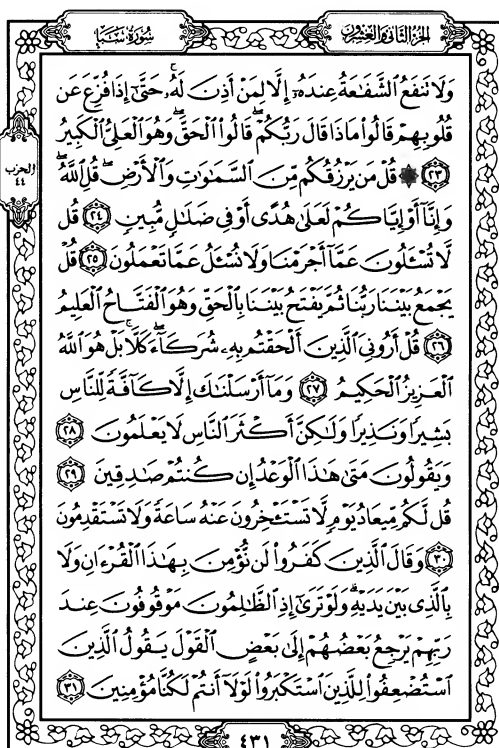 الجزء الثاني والعشرون
سورة سبإ
وَلَا تَنفَعُ ٱلشَّفَٰعَةُ عِندَهُۥٓ إِلَّا لِمَنْ أَذِنَ لَهُۥ ۚ حَتَّىٰٓ إِذَا فُزِّعَ عَن
قُلُوبِهِمْ قَالُوا۟ مَاذَا قَالَ رَبُّكُمْ ۖ قَالُوا۟ ٱلْحَقَّ ۖ وَهُوَ ٱلْعَلِىُّ ٱلْكَبِيرُ
الحزب
٤٤
﴿٢٣﴾ ۞ قُلْ مَن يَرْزُقُكُم مِّنَ ٱلسَّمَٰوَٰتِ وَٱلْأَرْضِ ۖ قُلِ ٱللَّهُ ۖ
وَإِنَّآ أَوْ إِيَّاكُمْ لَعَلَىٰ هُدًى أَوْ فِى ضَلَٰلٍ مُّبِينٍ ﴿٢٤﴾ قُل
لَّا تُسْـَٔلُونَ عَمَّآ أَجْرَمْنَا وَلَا نُسْـَٔلُ عَمَّا تَعْمَلُونَ ﴿٢٥﴾ قُلْ
يَجْمَعُ بَيْنَنَا رَبُّنَا ثُمَّ يَفْتَحُ بَيْنَنَا بِٱلْحَقِّ وَهُوَ ٱلْفَتَّاحُ ٱلْعَلِيمُ
﴿٢٦﴾ قُلْ أَرُونِىَ ٱلَّذِينَ أَلْحَقْتُم بِهِۦ شُرَكَآءَ ۖ كَلَّا ۚ بَلْ هُوَ ٱللَّهُ
ٱلْعَزِيزُ ٱلْحَكِيمُ ﴿٢٧﴾ وَمَآ أَرْسَلْنَٰكَ إِلَّا كَآفَّةً لِّلنَّاسِ
بَشِيرًا وَنَذِيرًا وَلَٰكِنَّ أَكْثَرَ ٱلنَّاسِ لَا يَعْلَمُونَ ﴿٢٨﴾
وَيَقُولُونَ مَتَىٰ هَٰذَا ٱلْوَعْدُ إِن كُنتُمْ صَٰدِقِينَ ﴿٢٩﴾
قُل لَّكُم مِّيعَادُ يَوْمٍ لَّا تَسْتَـْٔخِرُونَ عَنْهُ سَاعَةً وَلَا تَسْتَقْدِمُونَ
﴿٣٠﴾ وَقَالَ ٱلَّذِينَ كَفَرُوا۟ لَن نُّؤْمِنَ بِهَٰذَا ٱلْقُرْءَانِ وَلَا
بِٱلَّذِى بَيْنَ يَدَيْهِ ۗ وَلَوْ تَرَىٰٓ إِذِ ٱلظَّٰلِمُونَ مَوْقُوفُونَ عِندَ
رَبِّهِمْ يَرْجِعُ بَعْضُهُمْ إِلَىٰ بَعْضٍ ٱلْقَوْلَ يَقُولُ ٱلَّذِينَ
ٱسْتُضْعِفُوا۟ لِلَّذِينَ ٱسْتَكْبَرُوا۟ لَوْلَآ أَنتُمْ لَكُنَّا مُؤْمِنِينَ ﴿٣١﴾
٤٣١